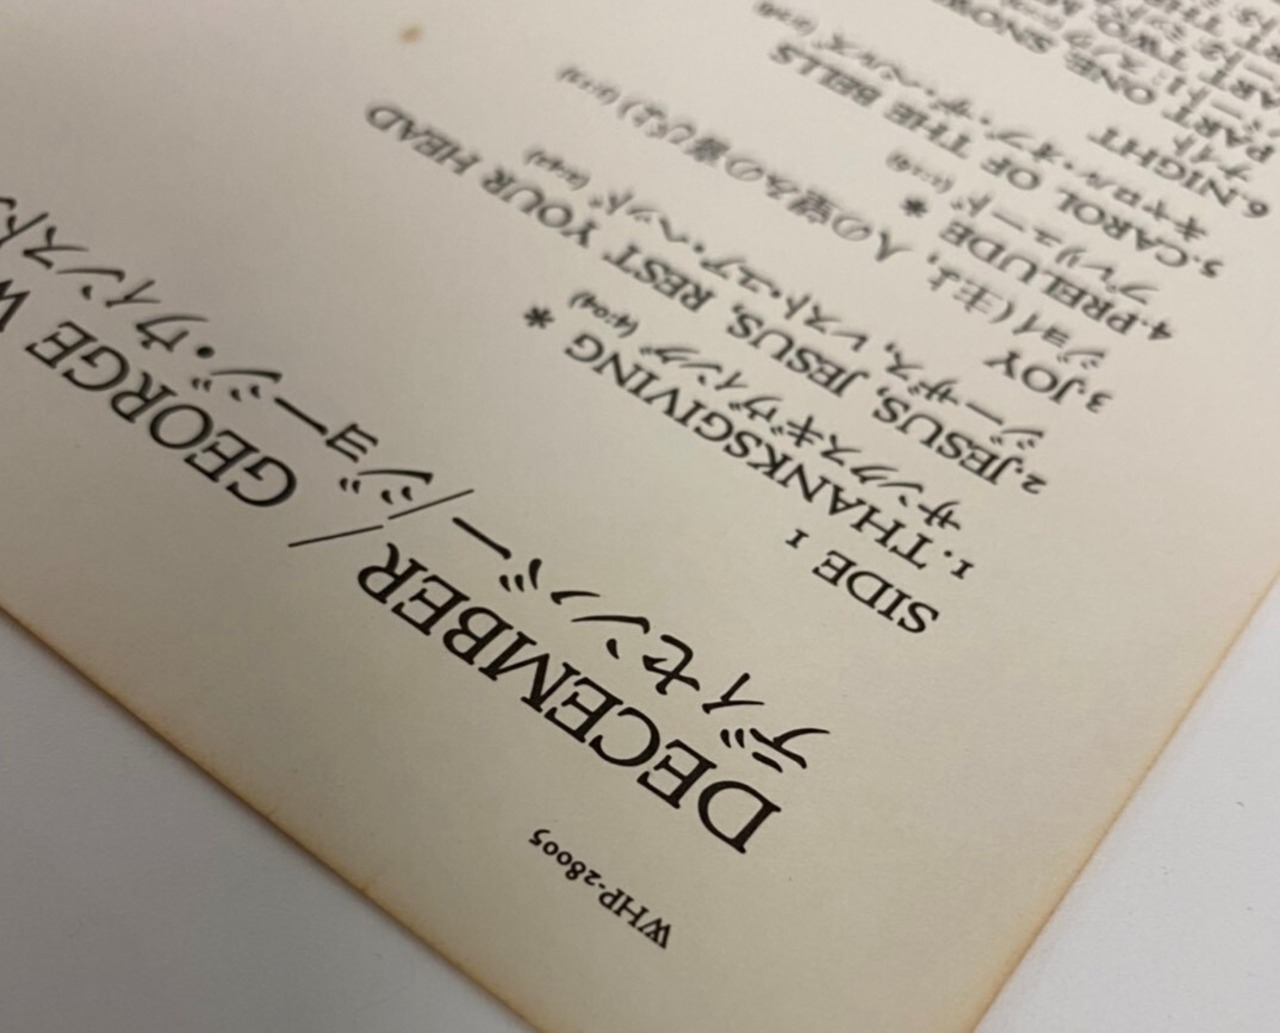 WHP-28005
DECEMBER / GEORGE W
ディセンバー/ジョージ・ウィンスト
SIDE 1
1.THANKSGIVING *
サンクスギヴィング (4:04)
2.JESUS, JESUS, REST YOUR HEAD
ジーザス、ジーザス、レスト・ユア・ヘッド
3.JOY
ジョイ (主よ、人の望みの喜びよ)
4.PRELUDE *
プレリュード
5.CAROL OF THE BELLS
キャロル・オブ・ザ・ベルズ
6.NIGHT
ナイト
PART ONE: SNOW